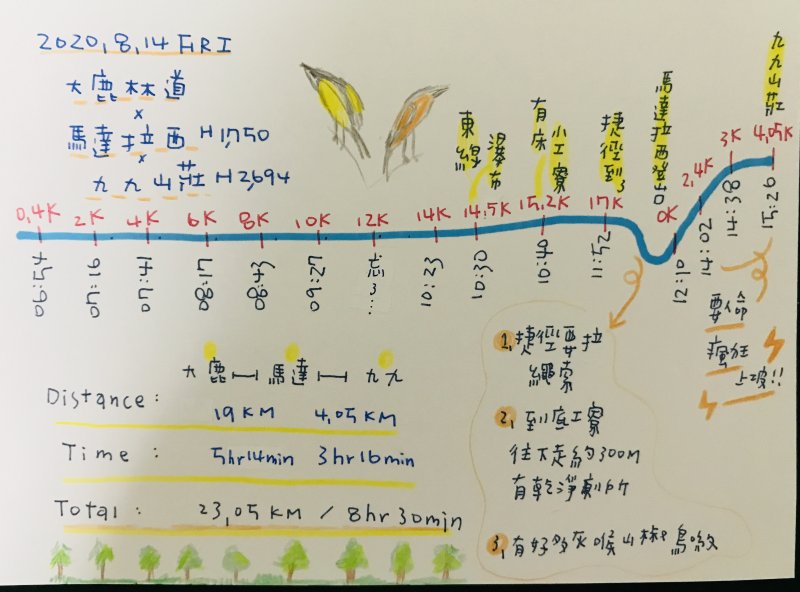 2020,8,14 FRI
大鹿林道
×
馬達拉西 H 1,750
×
九九山莊 H 2,694
東線
瀑布
有床
小工寮
捷徑到3
馬達拉西登山口
九九山莊
0,4K
2K
4K
6K
8K
10K
12K
14K
14,5K
15,2K
17K
0K
2,4K
3K
4,05K
06:54
07:16
07:41
08:17
08:43
09:27
忘了...
10:23
10:30
10:40
11:52
12:10
14:02
14:38
15:26
要命
瘋狂
上坡!!
大鹿 馬達 九九
Distance: 19 KM 4,05 KM
Time : 5hr14min 3hr16min
Total: 23,05 KM / 8hr 30min
1,捷徑要拉
繩索
2,到底工寮
往下走約300M
有乾淨廁所
3,有好多灰喉山椒鳥